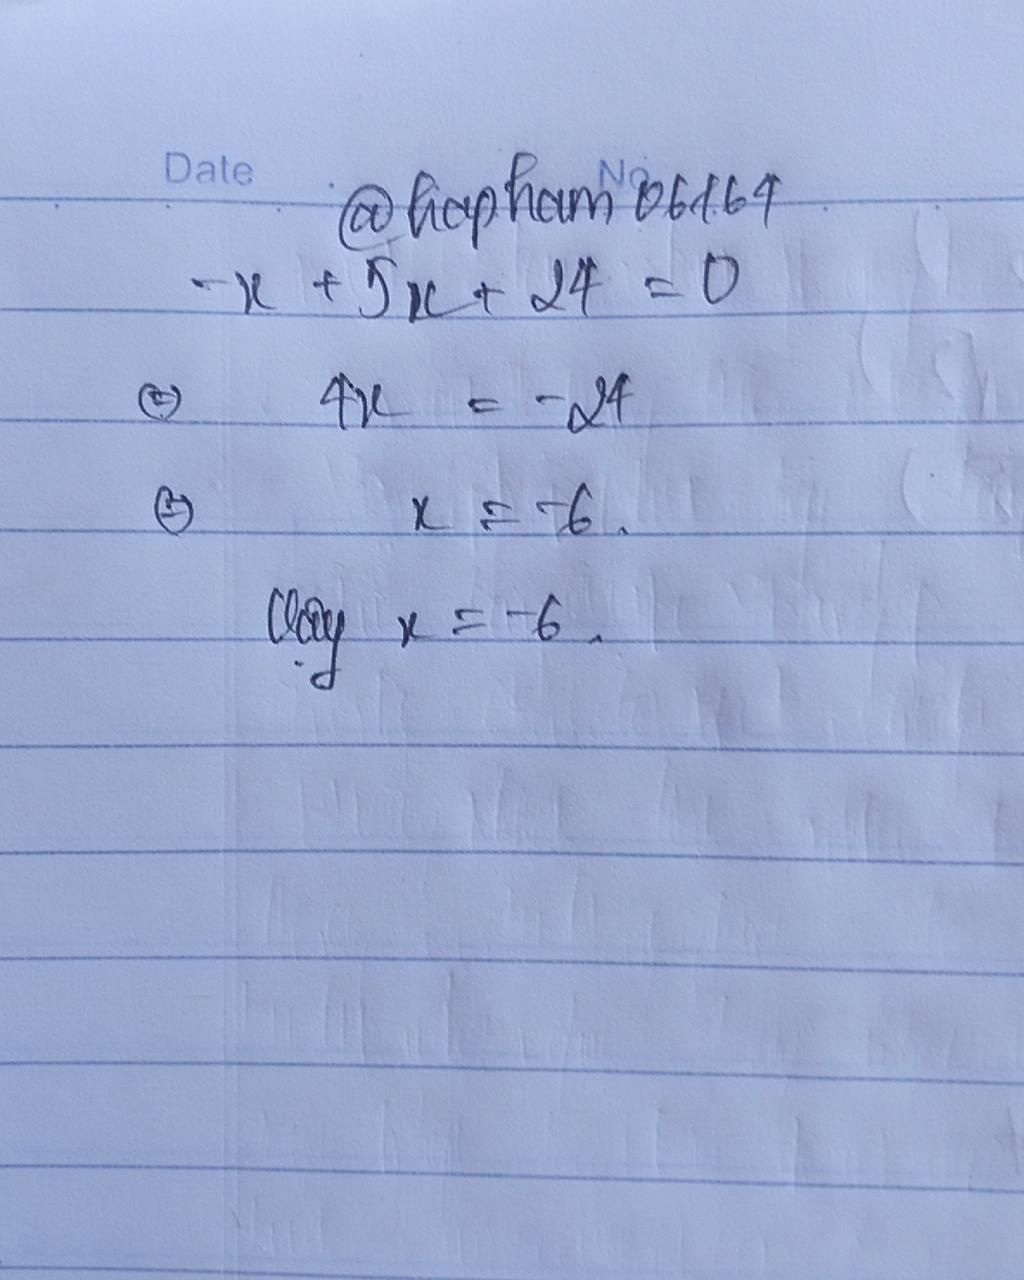 Date No
@hapham06164
-x + 5x + 24 = 0
⇔ 4x = -24
⇔ x = -6.
Vậy x = -6.